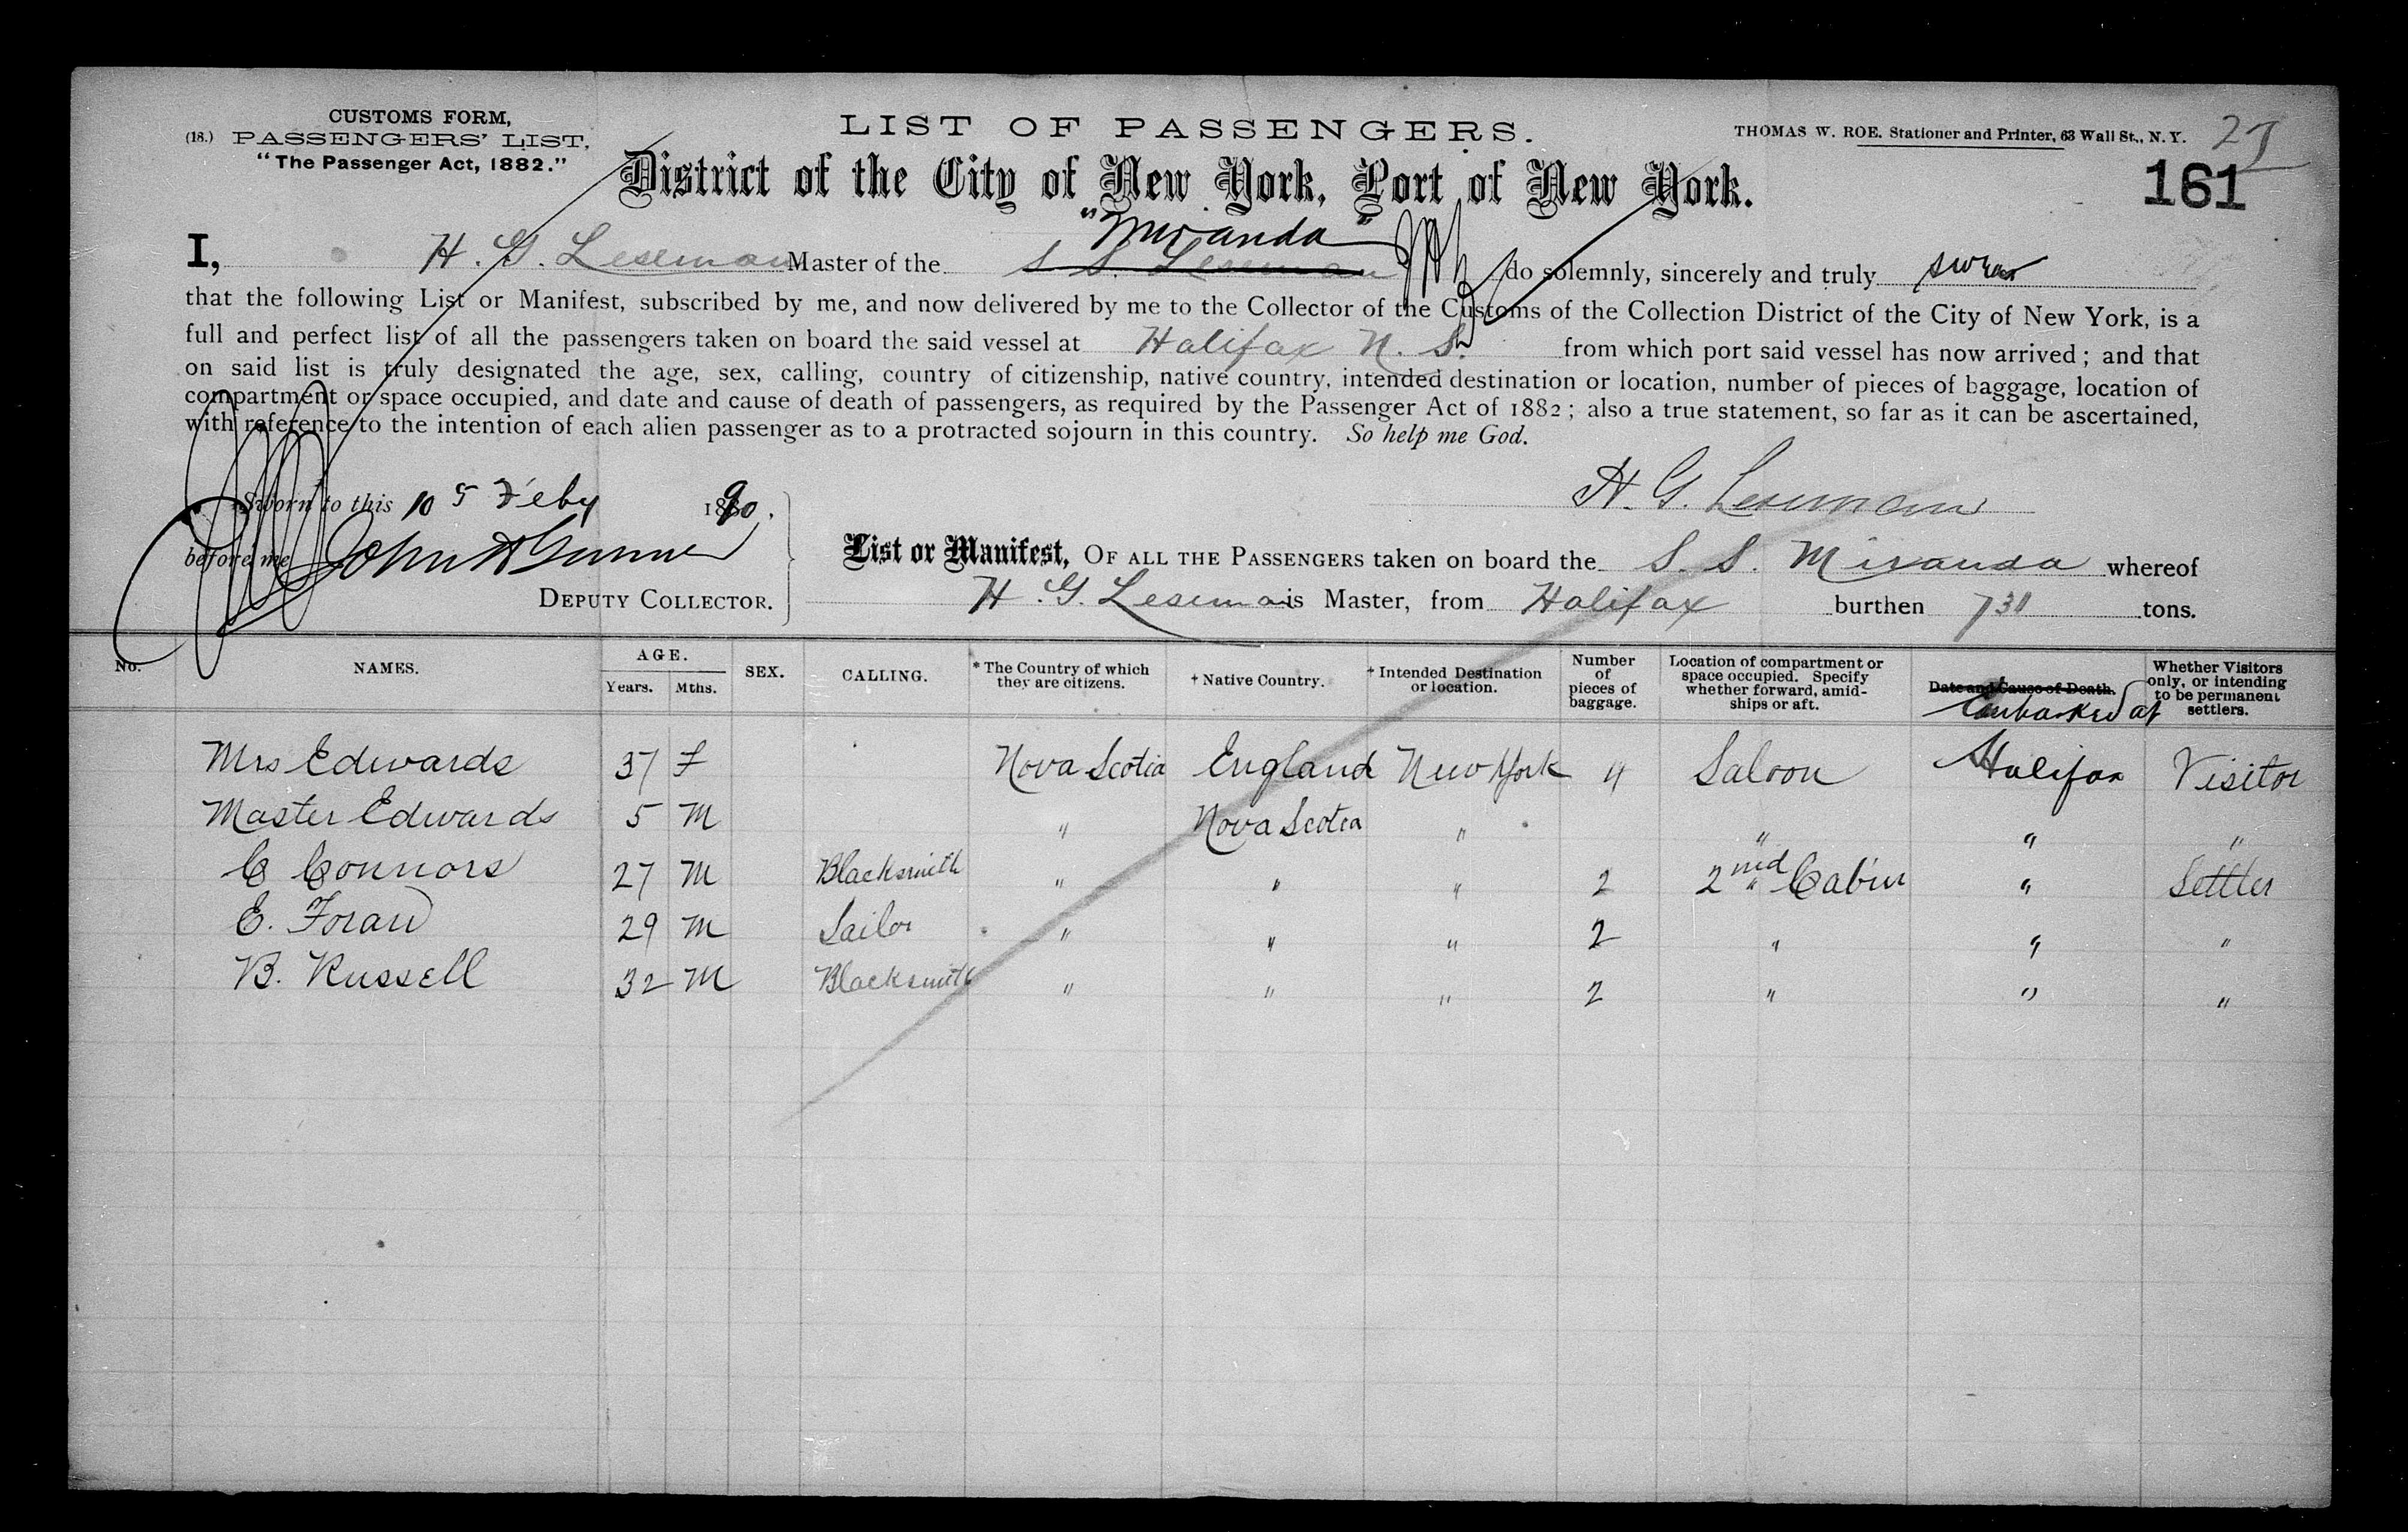 CUSTOMS FORM,
(18.) PASSENGERS' LIST,
"The Passenger Act, 1882."
LIST OF PASSENGERS.
THOMAS W. ROE. Stationer and Printer, 63 Wall St., N. Y.
District of the City of New York, Port of New York.
161
"Miranda"
I, H. G. Leseman Master of the S S. Leseman do solemnly, sincerely and truly swear
that the following List or Manifest, subscribed by me, and now delivered by me to the Collector of the Customs of the Collection District of the City of New York, is a
full and perfect list of all the passengers taken on board the said vessel at Halifax N. S. from which port said vessel has now arrived; and that
on said list is truly designated the age, sex, calling, country of citizenship, native country, intended destination or location, number of pieces of baggage, location of
compartment or space occupied, and date and cause of death of passengers, as required by the Passenger Act of 1882; also a true statement, so far as it can be ascertained,
with reference to the intention of each alien passenger as to a protracted sojourn in this country. So help me God.
H. G. Leseman
Sworn to this 10 Feby 1890.
before me John
DEPUTY COLLECTOR.
List or Manifest, OF ALL THE PASSENGERS taken on board the S. S. Miranda whereof
H. G. Leseman is Master, from Halifax burthen tons.
No. NAMES. AGE. Years. Mths. SEX. CALLING. * The Country of which they are citizens. † Native Country. † Intended Destination or location. Number of pieces of baggage. Location of compartment or space occupied. Specify whether forward, amidships or aft. Date and Cause of Death. Embarked at Whether Visitors only, or intending to be permanent settlers.
Mrs Edwards 37 F Nova Scotia England New York 4 Saloon Halifax Visitor
Master Edwards 5 M " Nova Scotia " " " "
C Connors 27 M Blacksmith " " " 2 2nd Cabin " Settler
E. Foran 29 M Sailor " " " 2 " " "
B. Russell 32 M Blacksmith " " " 2 " " "